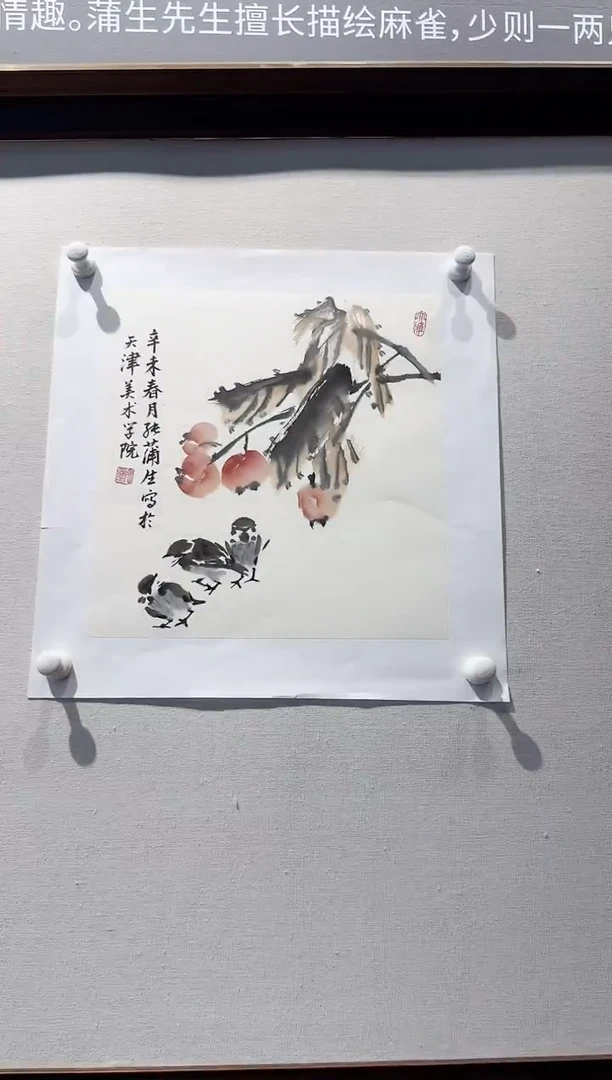 情趣。蒲生先生擅长描绘麻雀，少则一两
辛未春月张蒲生写于
天津美术学院